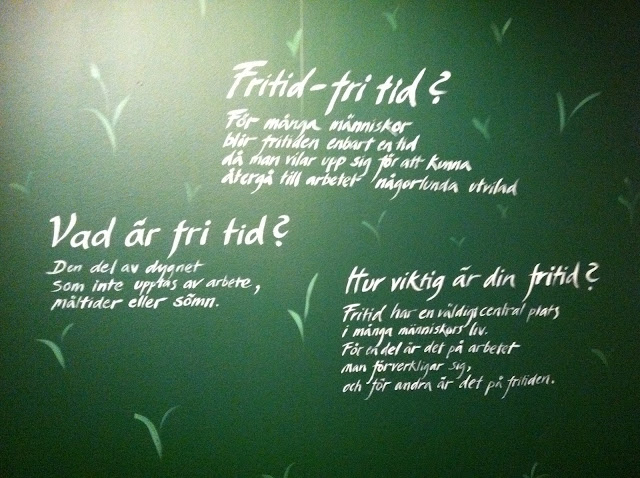 Fritid-fri tid?
För många människor
blir fritiden enbart en tid
då man vilar upp sig för att kunna
återgå till arbetet någorlunda utvilad
Vad är fri tid?
Den del av dygnet
som inte upptas av arbete,
måltider eller sömn.
Hur viktig är din fritid?
Fritid har en väldigt central plats
i många människors liv.
För en del är det på arbetet
man förverkligar sig,
och för andra är det på fritiden.